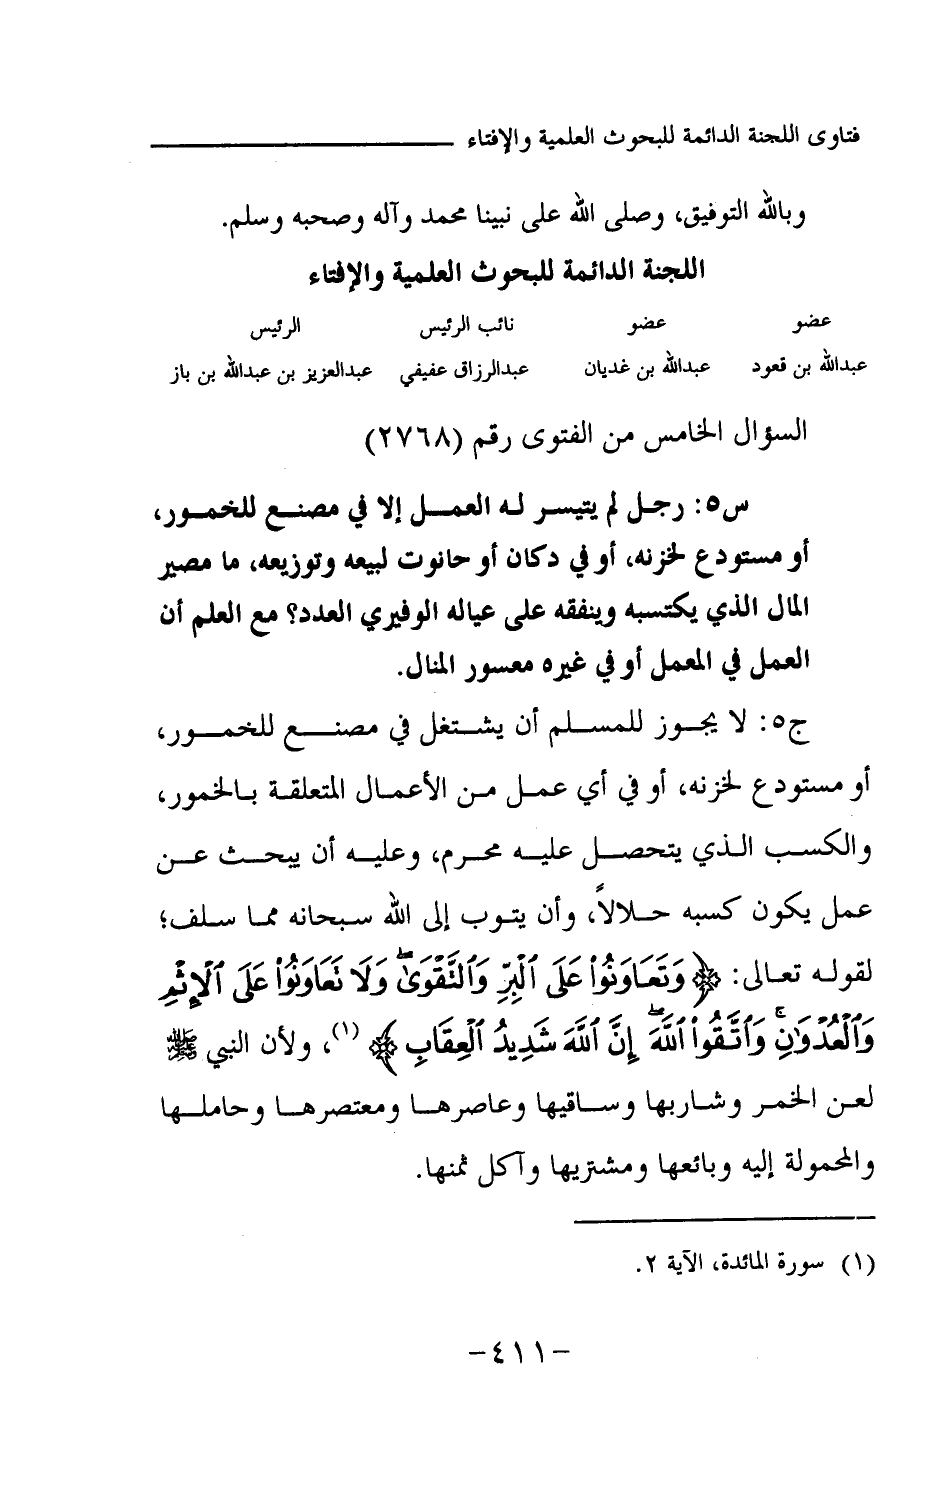 فتاوى اللجنة الدائمة للبحوث العلمية والإفتاء
وبالله التوفيق، وصلى الله على نبينا محمد وآله وصحبه وسلم.
اللجنة الدائمة للبحوث العلمية والإفتاء
عضو عضو نائب الرئيس الرئيس
عبدالله بن قعود عبدالله بن غديان عبدالرزاق عفيفي عبدالعزيز بن عبدالله بن باز
السؤال الخامس من الفتوى رقم (٢٧٦٨)
س٥: رجل لم يتيسر له العمل إلا في مصنع للخمور،
أو مستودع لخزنه، أو في دكان أو حانوت لبيعه وتوزيعه، ما مصير
المال الذي يكتسبه وينفقه على عياله الوفيري العدد؟ مع العلم أن
العمل في المعمل أو في غيره معسور المنال.
ج٥: لا يجوز للمسلم أن يشتغل في مصنع للخمور،
أو مستودع لخزنه، أو في أي عمل من الأعمال المتعلقة بالخمور،
والكسب الذي يتحصل عليه محرم، وعليه أن يبحث عن
عمل يكون كسبه حلالاً، وأن يتوب إلى الله سبحانه مما سلف؛
لقوله تعالى: ﴿ وَتَعَاوَنُواْ عَلَى ٱلْبِرِّ وَٱلتَّقْوَىٰۖ وَلَا تَعَاوَنُواْ عَلَى ٱلْإِثْمِ
وَٱلْعُدْوَٰنِۚ وَٱتَّقُواْ ٱللَّهَۖ إِنَّ ٱللَّهَ شَدِيدُ ٱلْعِقَابِ ﴾ (١)، ولأن النبي ﷺ
لعن الخمر وشاربها وساقيها وعاصرها ومعتصرها وحاملها
والمحمولة إليه وبائعها ومشتريها وآكل ثمنها.
(١) سورة المائدة، الآية ٢.
-٤١١-